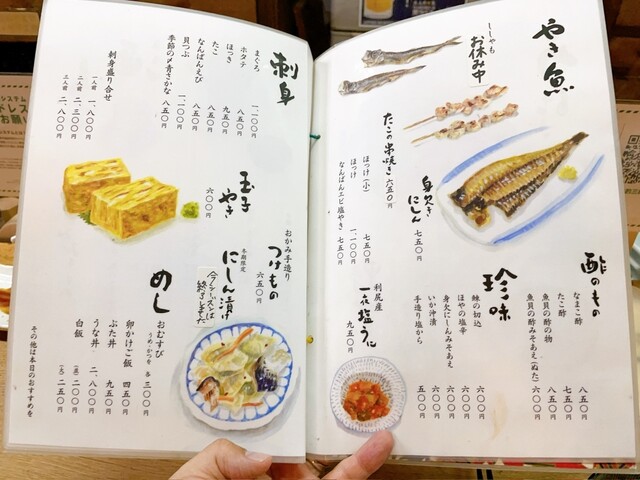 やき魚
ししゃも
お休み中
たこの串焼き 六五〇円
ほっけ(小) 七五〇円
ほっけ 一、一〇〇円
なんばんエビ塩やき 七五〇円
身欠きにしん 七五〇円
酢のもの
なまこ酢 八五〇円
たこ酢 七五〇円
魚貝の酢の物 八五〇円
魚貝の酢みそあえ(ぬた) 六〇〇円
珍味
鮭の切込 六〇〇円
ほやの塩辛 六〇〇円
身欠にしんみそあえ 六〇〇円
いか沖漬 六〇〇円
手造り塩から 五〇〇円
利尻産
一夜塩うに
九五〇円
刺身
まぐろ 一、一〇〇円
ホタテ 八五〇円
ほっき 九五〇円
たこ 八五〇円
なんばんえび 八五〇円
貝つぶ 一、一〇〇円
季節の〆青さかな 八五〇円
刺身盛り合せ
一人前 一、八〇〇円
二人前 二、三〇〇円
三人前 二、八〇〇円
玉子やき
六〇〇円
おかみ手造り
つけもの
六五〇円
冬期限定
にしん漬
今シーズンは
終了しました
めし
おむすび うめ・かつを 各三〇〇円
卵かけご飯 四五〇円
ぶた丼 九五〇円
うな丼 二、八〇〇円
白飯 (大)二五〇円 (小)二〇〇円
その他は本日のおすすめを